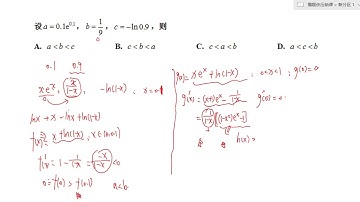 设 a = 0.1e^{0.1}, b = \frac{1}{9}, c = -ln0.9, 则
A. a < b < c
B. c < b < a
C. c < a < b
D. a < c < b
0.1
0.9
xe^x, \frac{x}{1-x}, -ln(1-x), x=0.1
lnx + x - lnx
f(x) = x + ln(1-x), x∈(0.1)
f'(x) = 1 - \frac{1}{1-x} = \frac{-x}{1-x} < 0
0 = f(0) > f(0.1)
a < b
g(x) = xe^x + ln(1-x), 0<x<1, g(0)=0
g'(x) = (x+1)e^x - \frac{1}{1-x}
g'(0) = 0
= \frac{1}{1-x}[(1-x^2)e^x - 1]
h(x) =